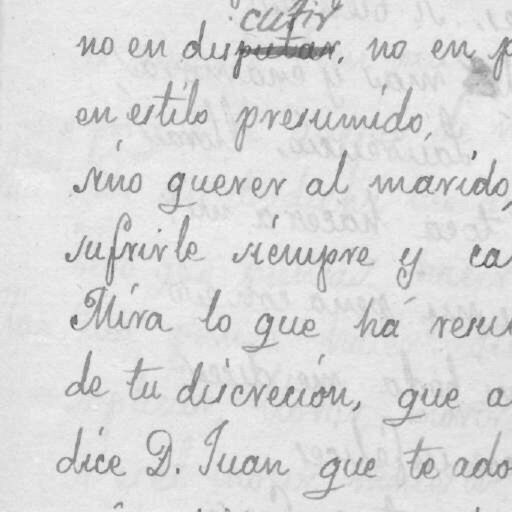 cutir
no en disputar, no en
en estilo presumido,
sino querer al marido,
sufrirle siempre y
Mira lo que ha
de tu discreción, que
dice D. Juan que te